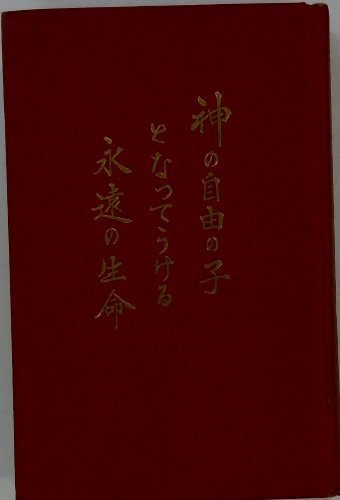 神の自由の子
となってうける
永遠の生命